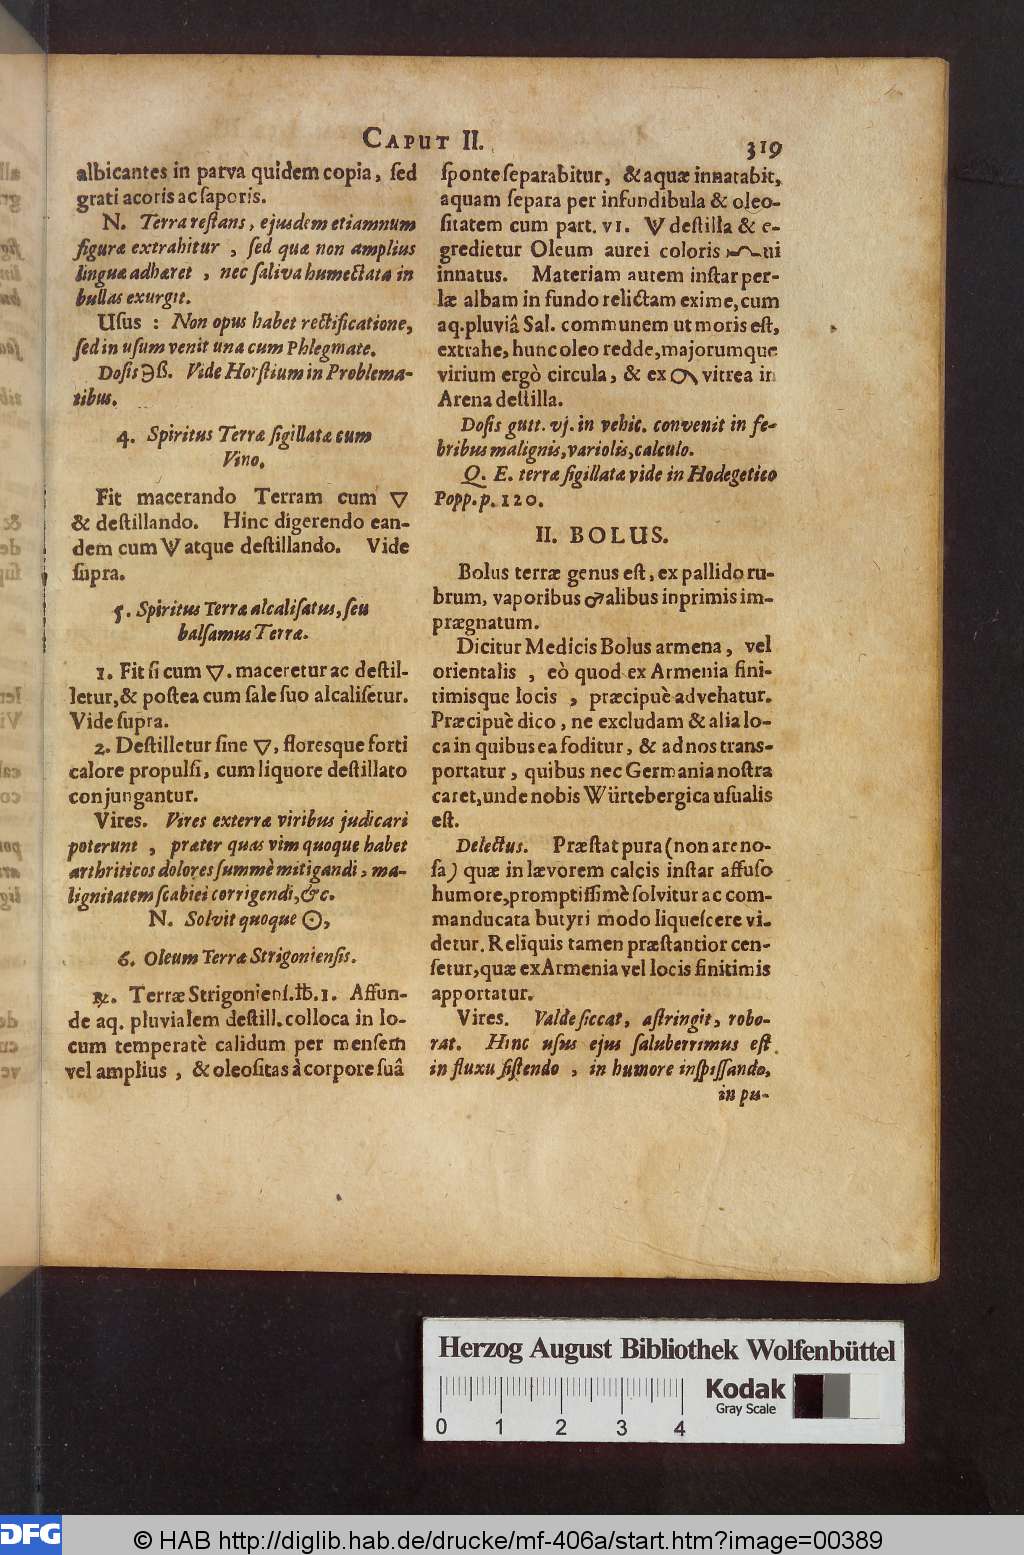 CAPUT II. 319
albicantes in parva quidem copia, ſed
grati acoris ac ſaporis.
N. Terra reſtans, ejusdem etiamnum
figuræ extrahitur, ſed quæ non amplius
linguæ adhæret, nec ſaliva humectata in
bullas exurgit.
Uſus: Non opus habet rectificatione,
ſed in uſum venit una cum Phlegmate.
Doſis ℈ß. Vide Horſtium in Problema-
tibus.
4. Spiritus Terræ ſigillatæ cum
Vino.
Fit macerando Terram cum 🜄
& deſtillando. Hinc digerendo ean-
dem cum atque deſtillando. Vide
ſupra.
5. Spiritus Terræ alcaliſatus, ſeu
balſamus Terræ.
1. Fit ſi cum 🜄. maceretur ac deſtil-
letur, & poſtea cum ſale ſuo alcaliſetur.
Vide ſupra.
2. Deſtilletur ſine 🜄, floresque forti
calore propulſi, cum liquore deſtillato
conjungantur.
Vires. Vires ex terræ viribus judicari
poterunt, præter quas vim quoque habet
arthriticos dolores ſummè mitigandi, ma-
lignitatem ſcabiei corrigendi, &c.
N. Solvit quoque ☉,
6. Oleum Terræ Strigonienſis.
℞. Terræ Strigonienſ. ℔. 1. Affun-
de aq. pluvialem deſtill. colloca in lo-
cum temperatè calidum per menſem
vel amplius, & oleoſitas à corpore ſuâ
ſponte ſeparabitur, & aquæ innatabit,
aquam ſepara per infundibula & oleo-
ſitatem cum part. VI. deſtilla & e-
gredietur Oleum aurei coloris ui
innatus. Materiam autem inſtar per-
læ albam in fundo relictam exime, cum
aq. pluviâ Sal. communem ut moris eſt,
extrahe, hunc oleo redde, majorumque
virium ergò circula, & ex vitrea in
Arena deſtilla.
Doſis gutt. vj. in vehic. convenit in fe-
bribus malignis, variolis, calculo.
Q. E. terræ ſigillatæ vide in Hodegetico
Popp. p. 120.
II. BOLUS.
Bolus terræ genus eſt, ex pallido ru-
brum, vaporibus ♂alibus inprimis im-
prægnatum.
Dicitur Medicis Bolus armena, vel
orientalis, eò quod ex Armenia fini-
timisque locis, præcipuè advehatur.
Præcipuè dico, ne excludam & alia lo-
ca in quibus ea foditur, & ad nos trans-
portatur, quibus nec Germania noſtra
caret, unde nobis Würtebergica uſualis
eſt.
Delectus. Præſtat pura (non areno-
ſa) quæ in lævorem calcis inſtar affuſo
humore, promptiſſimè ſolvitur ac com-
manducata butyri modo liqueſcere vi-
detur. Reliquis tamen præſtantior cen-
ſetur, quæ ex Armenia vel locis finitimis
apportatur.
Vires. Valde ſiccat, aſtringit, robo-
rat. Hinc uſus ejus ſaluberrimus eſt
in fluxu ſiſtendo, in humore inſpiſſando,
in pu-
Herzog August Bibliothek Wolfenbüttel
0 1 2 3 4
Kodak
Gray Scale
DFG
© HAB http://diglib.hab.de/drucke/mf-406a/start.htm?image=00389